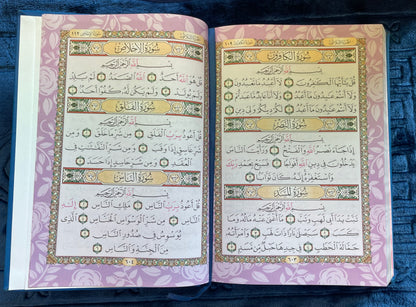 سُورَةُ الكَافِرُونَ
بِسْمِ اللَّهِ الرَّحْمَٰنِ الرَّحِيمِ
قُلْ يَٰٓأَيُّهَا ٱلْكَٰفِرُونَ ١ لَآ أَعْبُدُ مَا تَعْبُدُونَ ٢
وَلَآ أَنتُمْ عَٰبِدُونَ مَآ أَعْبُدُ ٣ وَلَآ أَنَا۠ عَابِدٌ مَّا عَبَدتُّمْ ٤
وَلَآ أَنتُمْ عَٰبِدُونَ مَآ أَعْبُدُ ٥ لَكُمْ دِينُكُمْ وَلِىَ دِينِ ٦
سُورَةُ النَّصْرِ
بِسْمِ اللَّهِ الرَّحْمَٰنِ الرَّحِيمِ
إِذَا جَآءَ نَصْرُ ٱللَّهِ وَٱلْفَتْحُ ١ وَرَأَيْتَ ٱلنَّاسَ
يَدْخُلُونَ فِى دِينِ ٱللَّهِ أَفْوَاجًا ٢ فَسَبِّحْ بِحَمْدِ رَبِّكَ
وَٱسْتَغْفِرْهُ إِنَّهُۥ كَانَ تَوَّابًۢا ٣
سُورَةُ المَسَدِ
بِسْمِ اللَّهِ الرَّحْمَٰنِ الرَّحِيمِ
تَبَّتْ يَدَآ أَبِى لَهَبٍ وَتَبَّ ١ مَآ أَغْنَىٰ عَنْهُ مَالُهُۥ وَمَا
كَسَبَ ٢ سَيَصْلَىٰ نَارًا ذَاتَ لَهَبٍ ٣ وَٱمْرَأَتُهُۥ
حَمَّالَةَ ٱلْحَطَبِ ٤ فِى جِيدِهَا حَبْلٌ مِّن مَّسَدٍۭ ٥
٦٠٣
سُورَةُ الإِخْلَاصِ
بِسْمِ اللَّهِ الرَّحْمَٰنِ الرَّحِيمِ
قُلْ هُوَ ٱللَّهُ أَحَدٌ ١ ٱللَّهُ ٱلصَّمَدُ ٢ لَمْ يَلِدْ
وَلَمْ يُولَدْ ٣ وَلَمْ يَكُن لَّهُۥ كُفُوًا أَحَدٌۢ ٤
سُورَةُ الفَلَقِ
بِسْمِ اللَّهِ الرَّحْمَٰنِ الرَّحِيمِ
قُلْ أَعُوذُ بِرَبِّ ٱلْفَلَقِ ١ مِن شَرِّ مَا خَلَقَ ٢
وَمِن شَرِّ غَاسِقٍ إِذَا وَقَبَ ٣ وَمِن شَرِّ ٱلنَّفَّٰثَٰتِ فِى
ٱلْعُقَدِ ٤ وَمِن شَرِّ حَاسِدٍ إِذَا حَسَدَ ٥
سُورَةُ النَّاسِ
بِسْمِ اللَّهِ الرَّحْمَٰنِ الرَّحِيمِ
قُلْ أَعُوذُ بِرَبِّ ٱلنَّاسِ ١ مَلِكِ ٱلنَّاسِ ٢ إِلَٰهِ
ٱلنَّاسِ ٣ مِن شَرِّ ٱلْوَسْوَاسِ ٱلْخَنَّاسِ ٤ ٱلَّذِى
يُوَسْوِسُ فِى صُدُورِ ٱلنَّاسِ ٥
مِنَ ٱلْجِنَّةِ وَٱلنَّاسِ ٦
٦٠٤